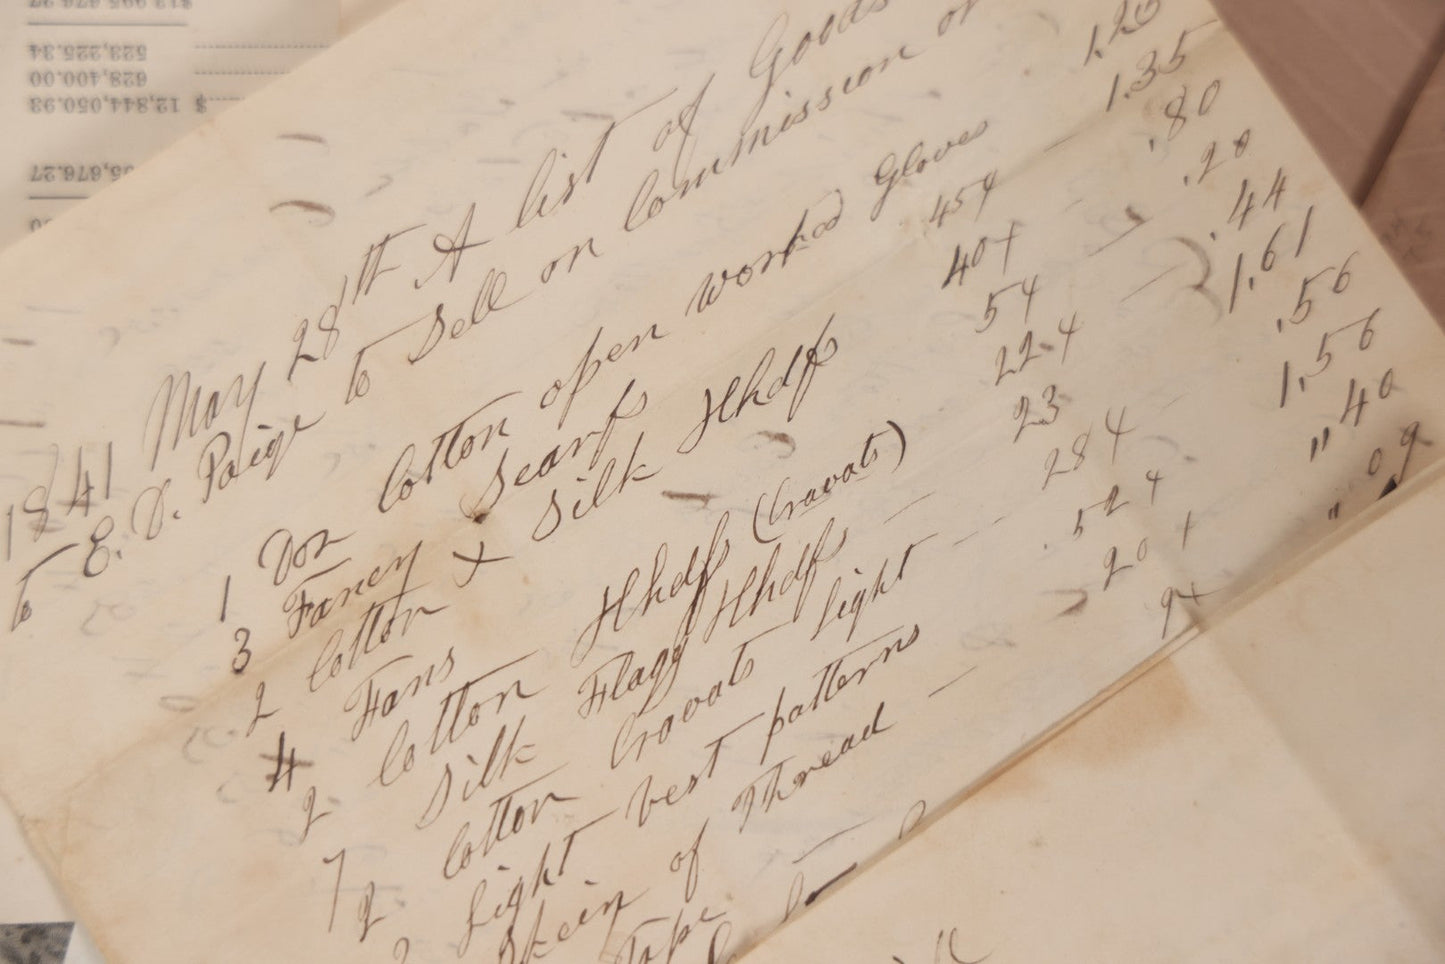 $13,995,676.27
523,225.34
628,400.00
$ 12,844,050.93
1841 May 28th A list of Goods
to E. D. Paige to Sell on Commission or
1 Doz Cotton open worked Gloves 1.20
3 Fancy Scarfs 454 1.35
2 Cotton + Silk Hhdfs 404 .80
4 Fans 54 .20
2 Cotton Hhdfs (Cravats) 224 .44
7 Silk Flagg Hhdfs 23 1.61
2 Cotton Cravats light 284 .56
Light vest patterns .524 1,56
Skein of Thread 204 " 40
Tape 94 " 09